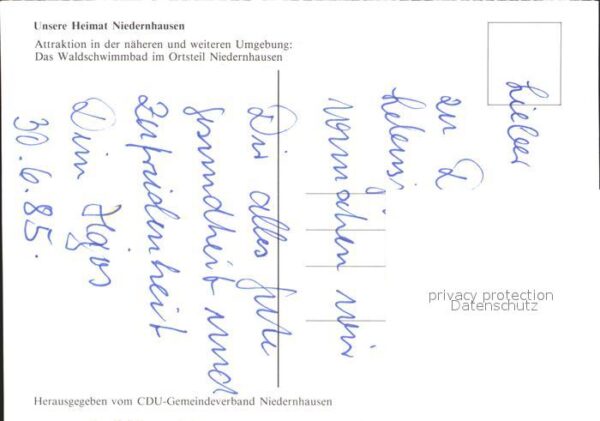 Unsere Heimat Niedernhausen
Attraktion in der näheren und weiteren Umgebung:
Das Waldschwimmbad im Ortsteil Niedernhausen
Lieber
zu
wünschen wir
Dir alles Gute
Gesundheit und
Zufriedenheit
Dein
30.6.85.
privacy protection
Datenschutz
Herausgegeben vom CDU-Gemeindeverband Niedernhausen